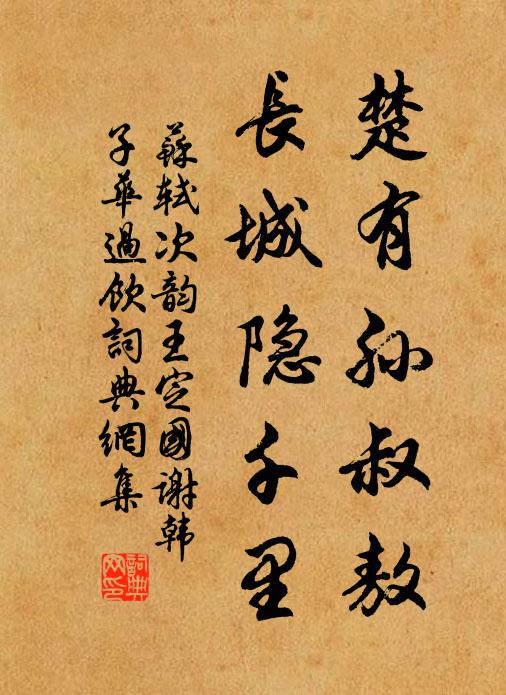 楚有孙叔敖
長城隐千里
蘇軾次韵王定國谢韩
子華過飲詞典網集
詞典
网印